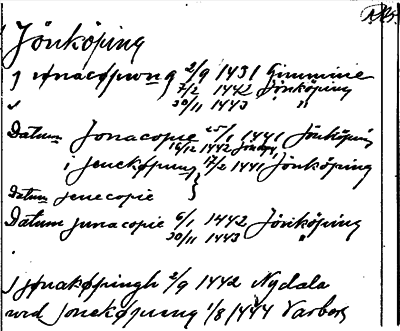 Jönköping
j iønacøpung 2/9 1431
" 7/2 1442 Jönköping
" 30/11 1443 "
Datum Jonacopie 25/1 1441 Jönköping
16/12 1442 Jönköp.
i jenekøpung 17/2 1441 Jönköping
datum jenecopie }
Datum junacopie 6/1 1442 Jönköping
30/11 1443 "
J jønakøpingh 2/9 1442 Nydala
wid jonekøpung 1/8 1444 Varberg